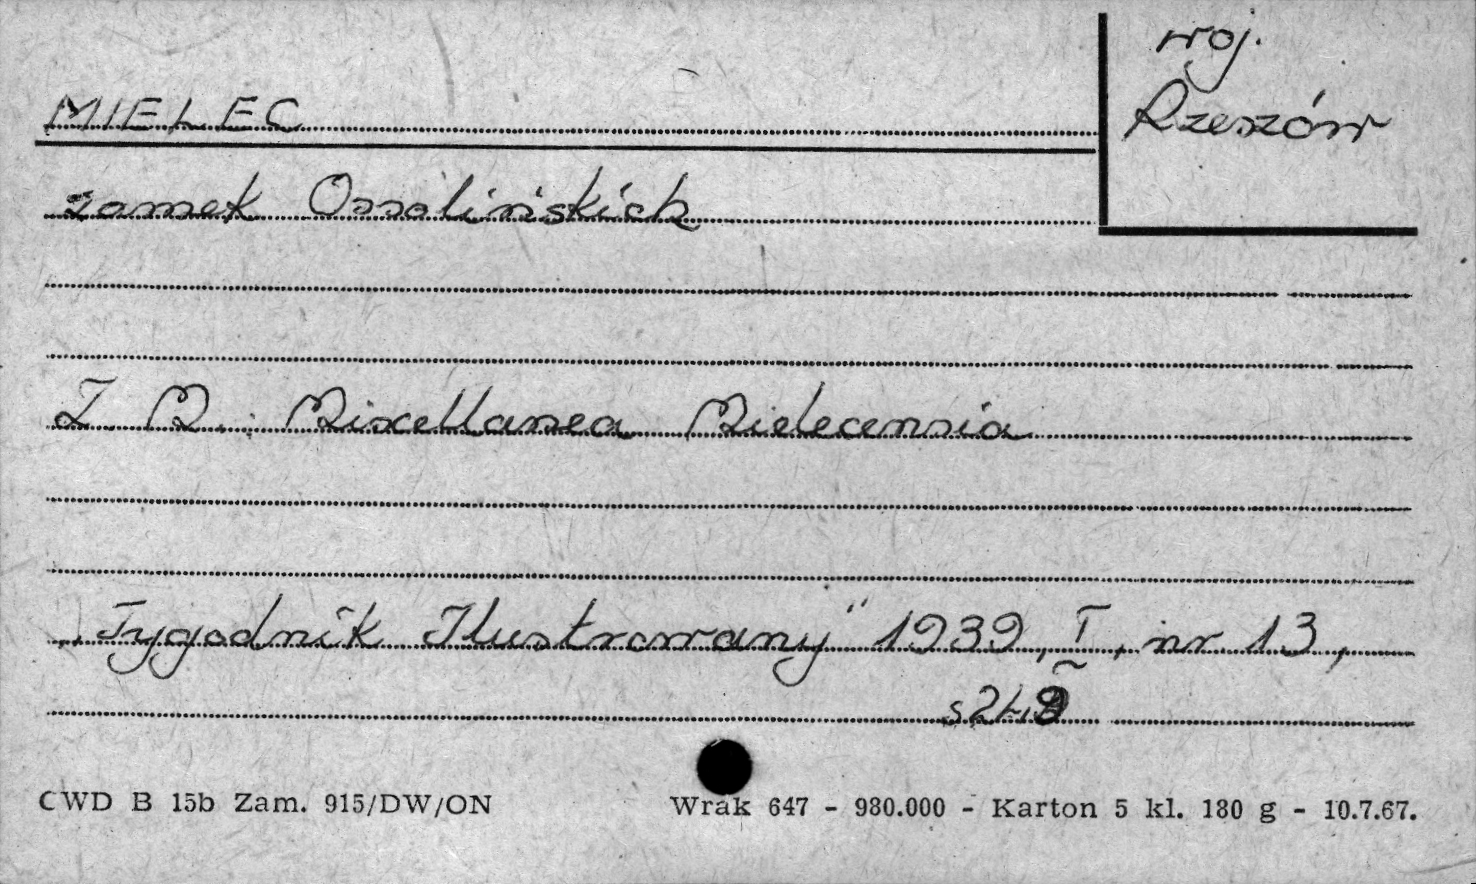 MIELEC
woj.
Rzeszów
zamek Ossolińskich
Z M. : Miscellanea Mielecensia
„Tygodnik Ilustrowany" 1939, I, nr 13,
CWD B 15b Zam. 915/DW/ON
Wrak 647 - 980.000 - Karton 5 kl. 180 g - 10.7.67.